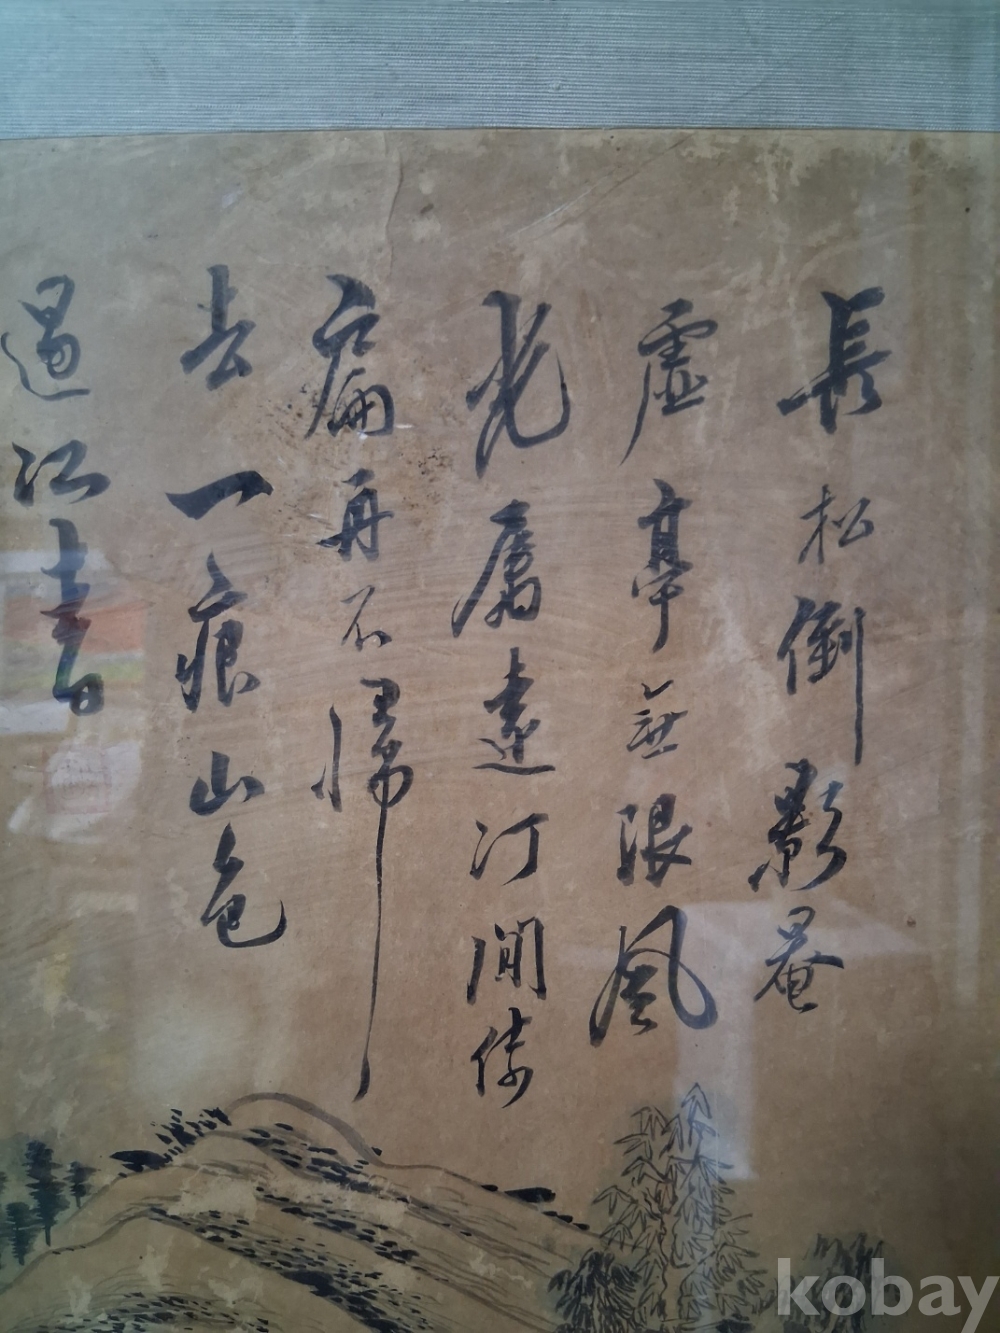 長松倒影暮
虛亭無限風
光屬遠汀閒倚
扁舟不歸
去一痕山色
過江書
kobay